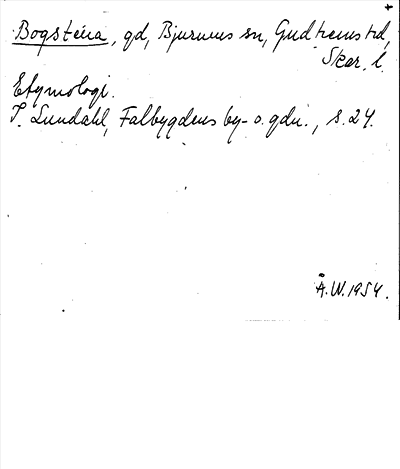 Bogstena, gd, Bjurums sn, Gudhems hd,
Skar. l.
Etymologi.
I. Lundahl, Falbygdens by- o. gdn., s. 24.
Å.W. 1954.